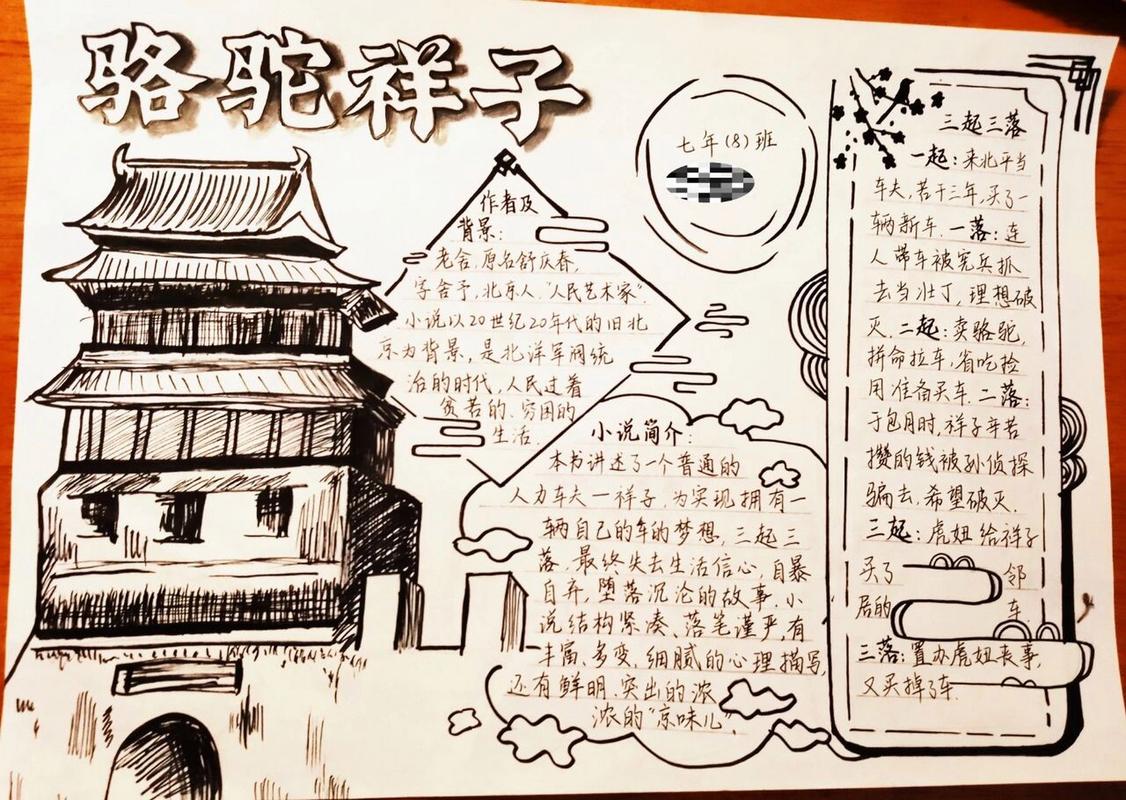 骆驼祥子
七年(8)班
作者及
背景:
老舍,原名舒庆春,
字舍予,北京人,“人民艺术家”.
小说以20世纪20年代的旧北
京为背景,是北洋军阀统
治的时代,人民过着
贫苦的、穷困的
生活.
小说简介:
本书讲述了一个普通的
人力车夫一祥子,为实现拥有一
辆自己的车的梦想,三起三
落,最终失去生活信心,自暴
自弃,堕落沉沦的故事.小
说结构紧凑、落笔谨严,有
丰富、多变,细腻的心理描写,
还有鲜明、突出的浓
浓的“京味儿”.
三起三落
一起:来北平当
车夫,若干三年,买了一
辆新车.一落:连
人带车被宪兵抓
去当壮丁,理想破
灭.二起:卖骆驼,
拼命拉车,省吃捡
用准备买车.二落:
于包月时,祥子辛苦
攒的钱被孙侦探
骗去,希望破灭.
三起:虎妞给祥子
买了邻
居的车.
三落:置办虎妞丧事,
又买掉了车.